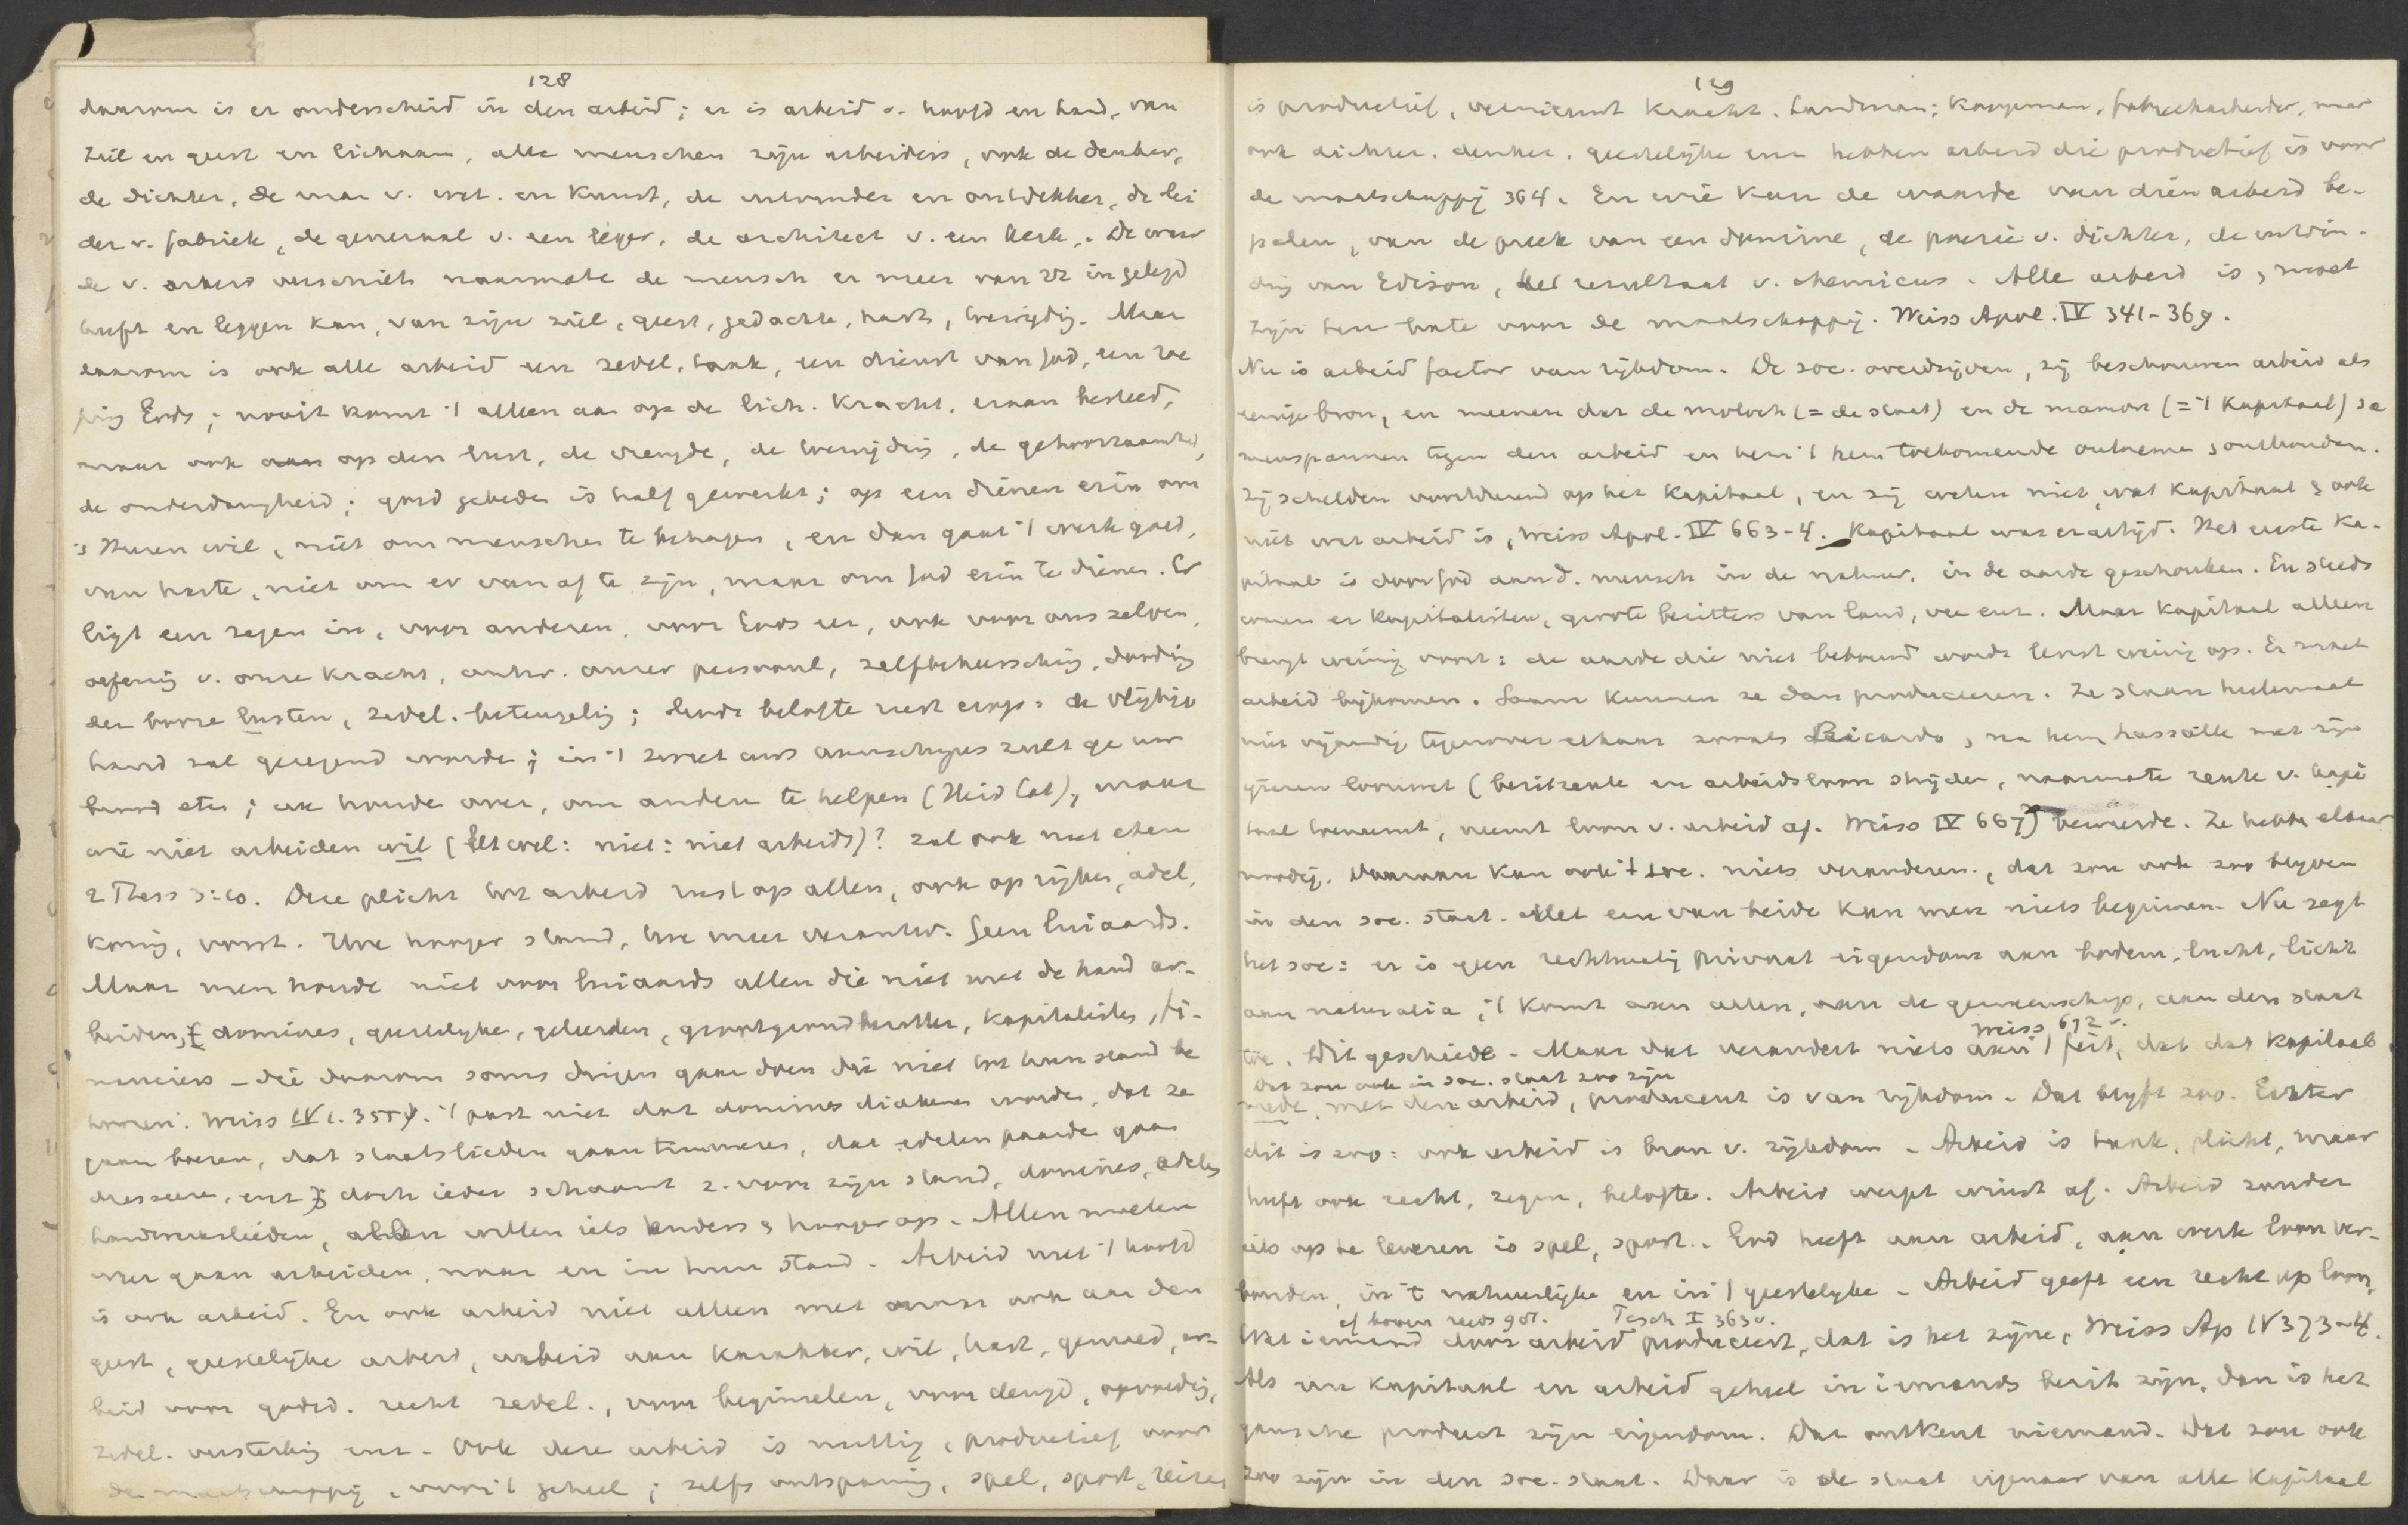 128
daarom is er onderscheid in den arbeid; er is arbeid v. hoofd en hand, van
ziel en geest en lichaam, alle menschen zijn arbeiders, ook de denker,
de dichter, de man v. wet. en Kunst, de uitvinder en ontdekker, de lei
der v. fabriek, de generaal v. een leger, de architect v. een kerk. De waar
de v. arbeid verschilt naarmate de mensch er meer van zz in gelegd
heeft en leggen kan, van zijn ziel, geest, gedachte, hart, toewijding. Maar
daarom is ook alle arbeid een zedel. taak, een dienst van God, een roe
ping Gods; nooit komt 't alleen aan op de lich. Kracht, eraan besteed,
maar ook op den lust, de vreugde, de toewijding, de gehoorzaamheid,
de onderdanigheid; goed gebeden is half gewerkt; op een dienen erin om
's Heren wil, niet om menschen te behagen, en dan gaat 't werk goed,
van harte, niet om er van af te zijn, maar om God erin te dienen. Er
ligt een zegen in, voor anderen, voor Gods eer, ook voor ons zelven,
oefening v. onze Kracht, ontw. onzer persoonl., zelfbeheersching, dooding
der booze lusten, zedel. beteugeling; Gods belofte rust erop: de vlijtige
hand zal gezegend worden; in 't zweet uws aanschijns zult ge uw
brood eten; en houde over, om anderen te helpen (Heid Cat), maar
wie niet arbeiden wil (let wel: niet: niet arbeidt)? zal ook niet eten
2 Thess 3:10. Deze plicht tot arbeid rust op allen, ook op rijken, adel,
Koning, vorst. Hoe hooger stand, hoe meer verantw. Geen luiaards.
Maar men houde niet voor luiaards allen die niet met de hand ar-
beiden, dominees, geestelijke, geleerden, grootgrondbezitter, Kapitalisten, fi-
nanciers – die daarom soms dingen gaan doen die niet tot hun stand be
hooren. Weiss IV 1. 355 v. 't past niet dat dominees diakens worden, dat ze
gaan boeren, dat staatslieden gaan timmeren, dat edelen paarde gaan
dresseeren, enz; doch ieder schaamt z. voor zijn stand, dominees, edelen
handwerkslieden, allen willen iets anders & hooger op. Allen moeten
weer gaan arbeiden, maar en in hun stand. Arbeid met 't hoofd
is ook arbeid. En ook arbeid niet alleen met maar ook aan den
geest, geestelijke arbeid, arbeid aan Karakter, wil, hart, gemoed, ar-
beid voor godsd. recht zedel., voor beginselen, voor deugd, opvoeding,
zedel. versterking enz. Ook deze arbeid is nuttig, productief voor
de maatschappij, voor 't geheel; zelfs ontspanning, spel, sport, reizen
129
is productief, vernieuwt Kracht. Landman, Koopman, fabrieksarbeider, maar
ook dichter, denker, geestelijke enz hebben arbeid die productief is voor
de maatschappij 364. En wie kan de waarde van dien arbeid be-
palen, van de preek van een dominee, de poezie v. dichter, de uitvin-
ding van Edison, het resultaat v. chemicus. Alle arbeid is, moet
zijn ten bate voor de maatschappij. Weiss Apol. IV 341-369.
Nu is arbeid factor van rijkdom. De soc. overdrijven, zij beschouwen arbeid als
eenige bron, en meenen dat de moloch (= de staat) en de mamon (= 't Kapitaal) sa
menspannen tegen den arbeid en hem 't hem toekomende ontnemen, onthouden.
Zij schelden voortdurend op het Kapitaal, en zij weten niet, wat Kapitaal & ook
niet wat arbeid is, Weiss Apol. IV 663-4. Kapitaal was er altijd. Het eerste Ka-
pitaal is door God aan d. mensch in de natuur, in de aarde geschonken. En steeds
waren er Kapitalisten, groote bezitters van land, vee enz. Maar Kapitaal alleen
brengt weinig voort: de aarde die niet bebouwd wordt levert weinig op. Er moet
arbeid bijkomen. Saam Kunnen ze dan produceeren. Ze staan heelemaal
niet vijandig tegenover elkaar zooals Ricardo, na hem Lassalle met zijn
ijzeren loonwet (bezitrente en arbeidsloon strijden, naarmate rente v. kapi
taal toeneemt, neemt loon v. arbeid af. Weiss IV 667) beweerde. Ze hebben elkaar
noodig. Daaraan kan ook 't soc. niets veranderen, dat zou ook zoo blijven
in den soc. staat. Met een van beide kan men niets beginnen. Nu zegt
het soc: er is geen rechtmatig privaat eigendom aan bodem, lucht, licht
aan naturalia, 't Komt aan allen, aan de gemeenschap, aan den staat
Weiss 672 v.
toe. Dit geschiede. Maar dat verandert niets aan 't feit, dat dat Kapitaal
Dat zou ook in soc. staat zoo zijn
mede, met den arbeid, producent is van rijkdom. Dat blijft zoo. Echter
dit is zoo: ook arbeid is bron v. rijkdom. Arbeid is taak, plicht, maar
heeft ook recht, zegen, belofte. Arbeid werpt winst af. Arbeid zonder
iets op te leveren is spel, sport. God heeft aan arbeid, aan werk loon ver-
bonden, in 't natuurlijke en in 't geestelijke. Arbeid geeft een recht op loon,
cf boven reeds 90v. Pesch I 363 v.
Wat iemand door arbeid produceert, dat is het zijne, Weiss Ap IV 373-4.
Als nu Kapitaal en arbeid geheel in iemands bezit zijn, dan is het
gansche product zijn eigendom. Dat ontkent niemand. Dat zou ook
zoo zijn in den soc. staat. Daar is de staat eigenaar van alle Kapitaal